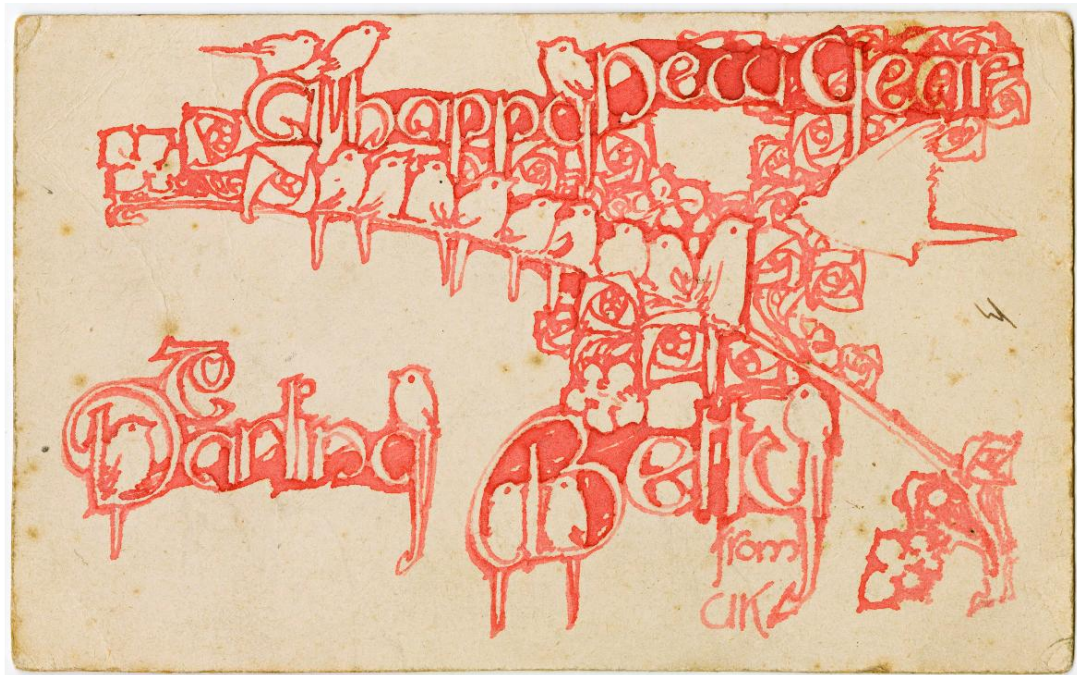 A happy New Year
To
Darling Betty
from
AK